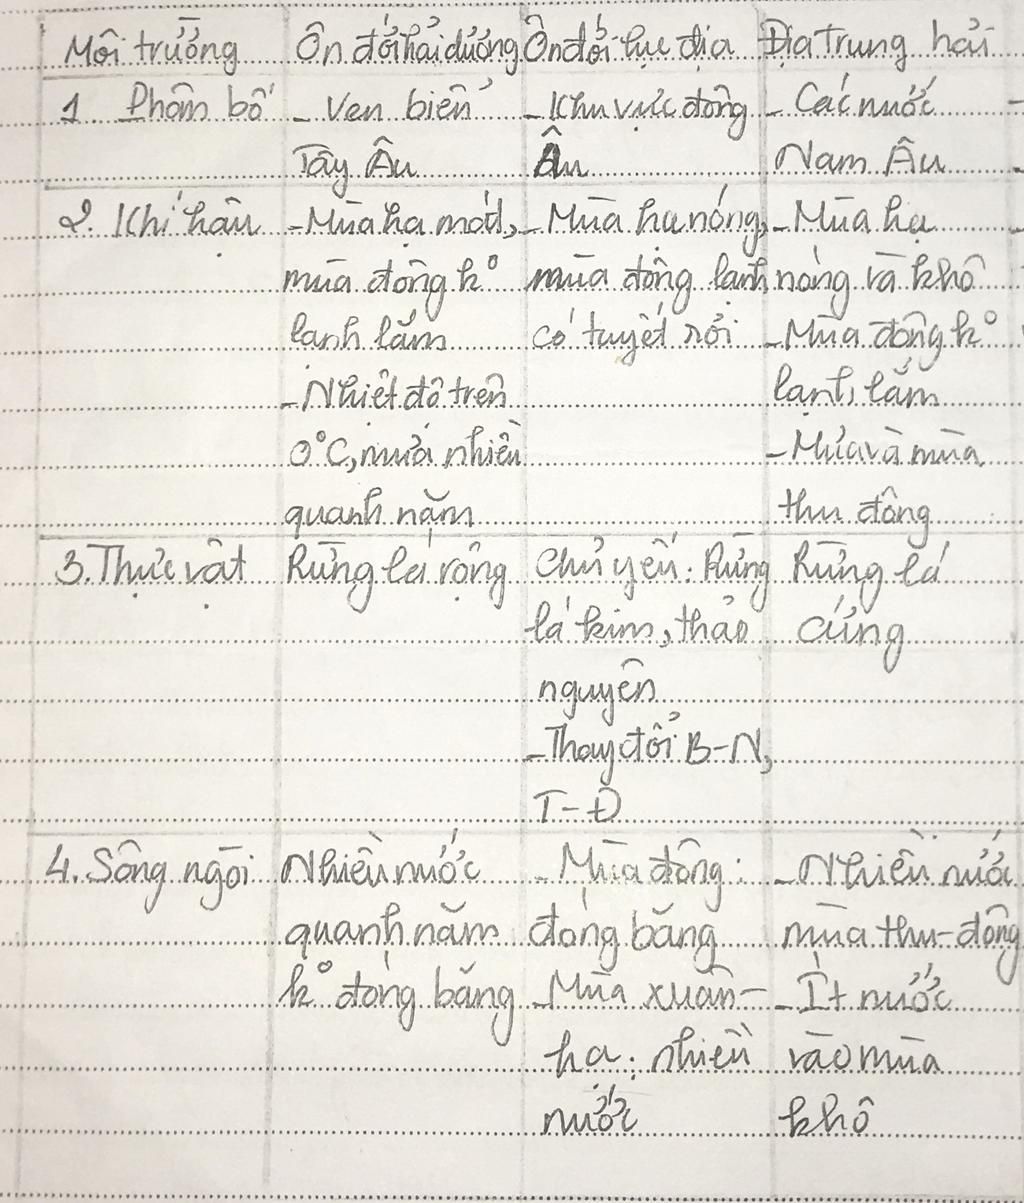 Môi trường Ôn đới hải dương Ôn đới lục địa Địa Trung hải
1. Phâm bố - Ven biển - Khu vực đông - Các nước
Tây Âu Âu Nam Âu
2. Khí hậu - Mùa hạ mát, - Mùa hạ nóng, - Mùa hạ
mùa đông kº mùa đông lạnh nóng và khô
lạnh lắm có tuyết rơi - Mùa đông kº
- Nhiệt độ trên lạnh lắm
0°C, mưa nhiều - Mưa và mùa
quanh năm thu đông
3. Thực vật Rừng lá rộng Chủ yếu: Rừng Rừng lá
lá kim, thảo cứng
nguyên
- Thay đổi B-N,
T-Đ
4. Sông ngòi Nhiều nước - Mùa đông: - Nhiều nước
quanh năm đóng băng mùa thu-đông
kº đóng băng - Mùa xuân- - Ít nước
hạ: nhiều vào mùa
nước khô